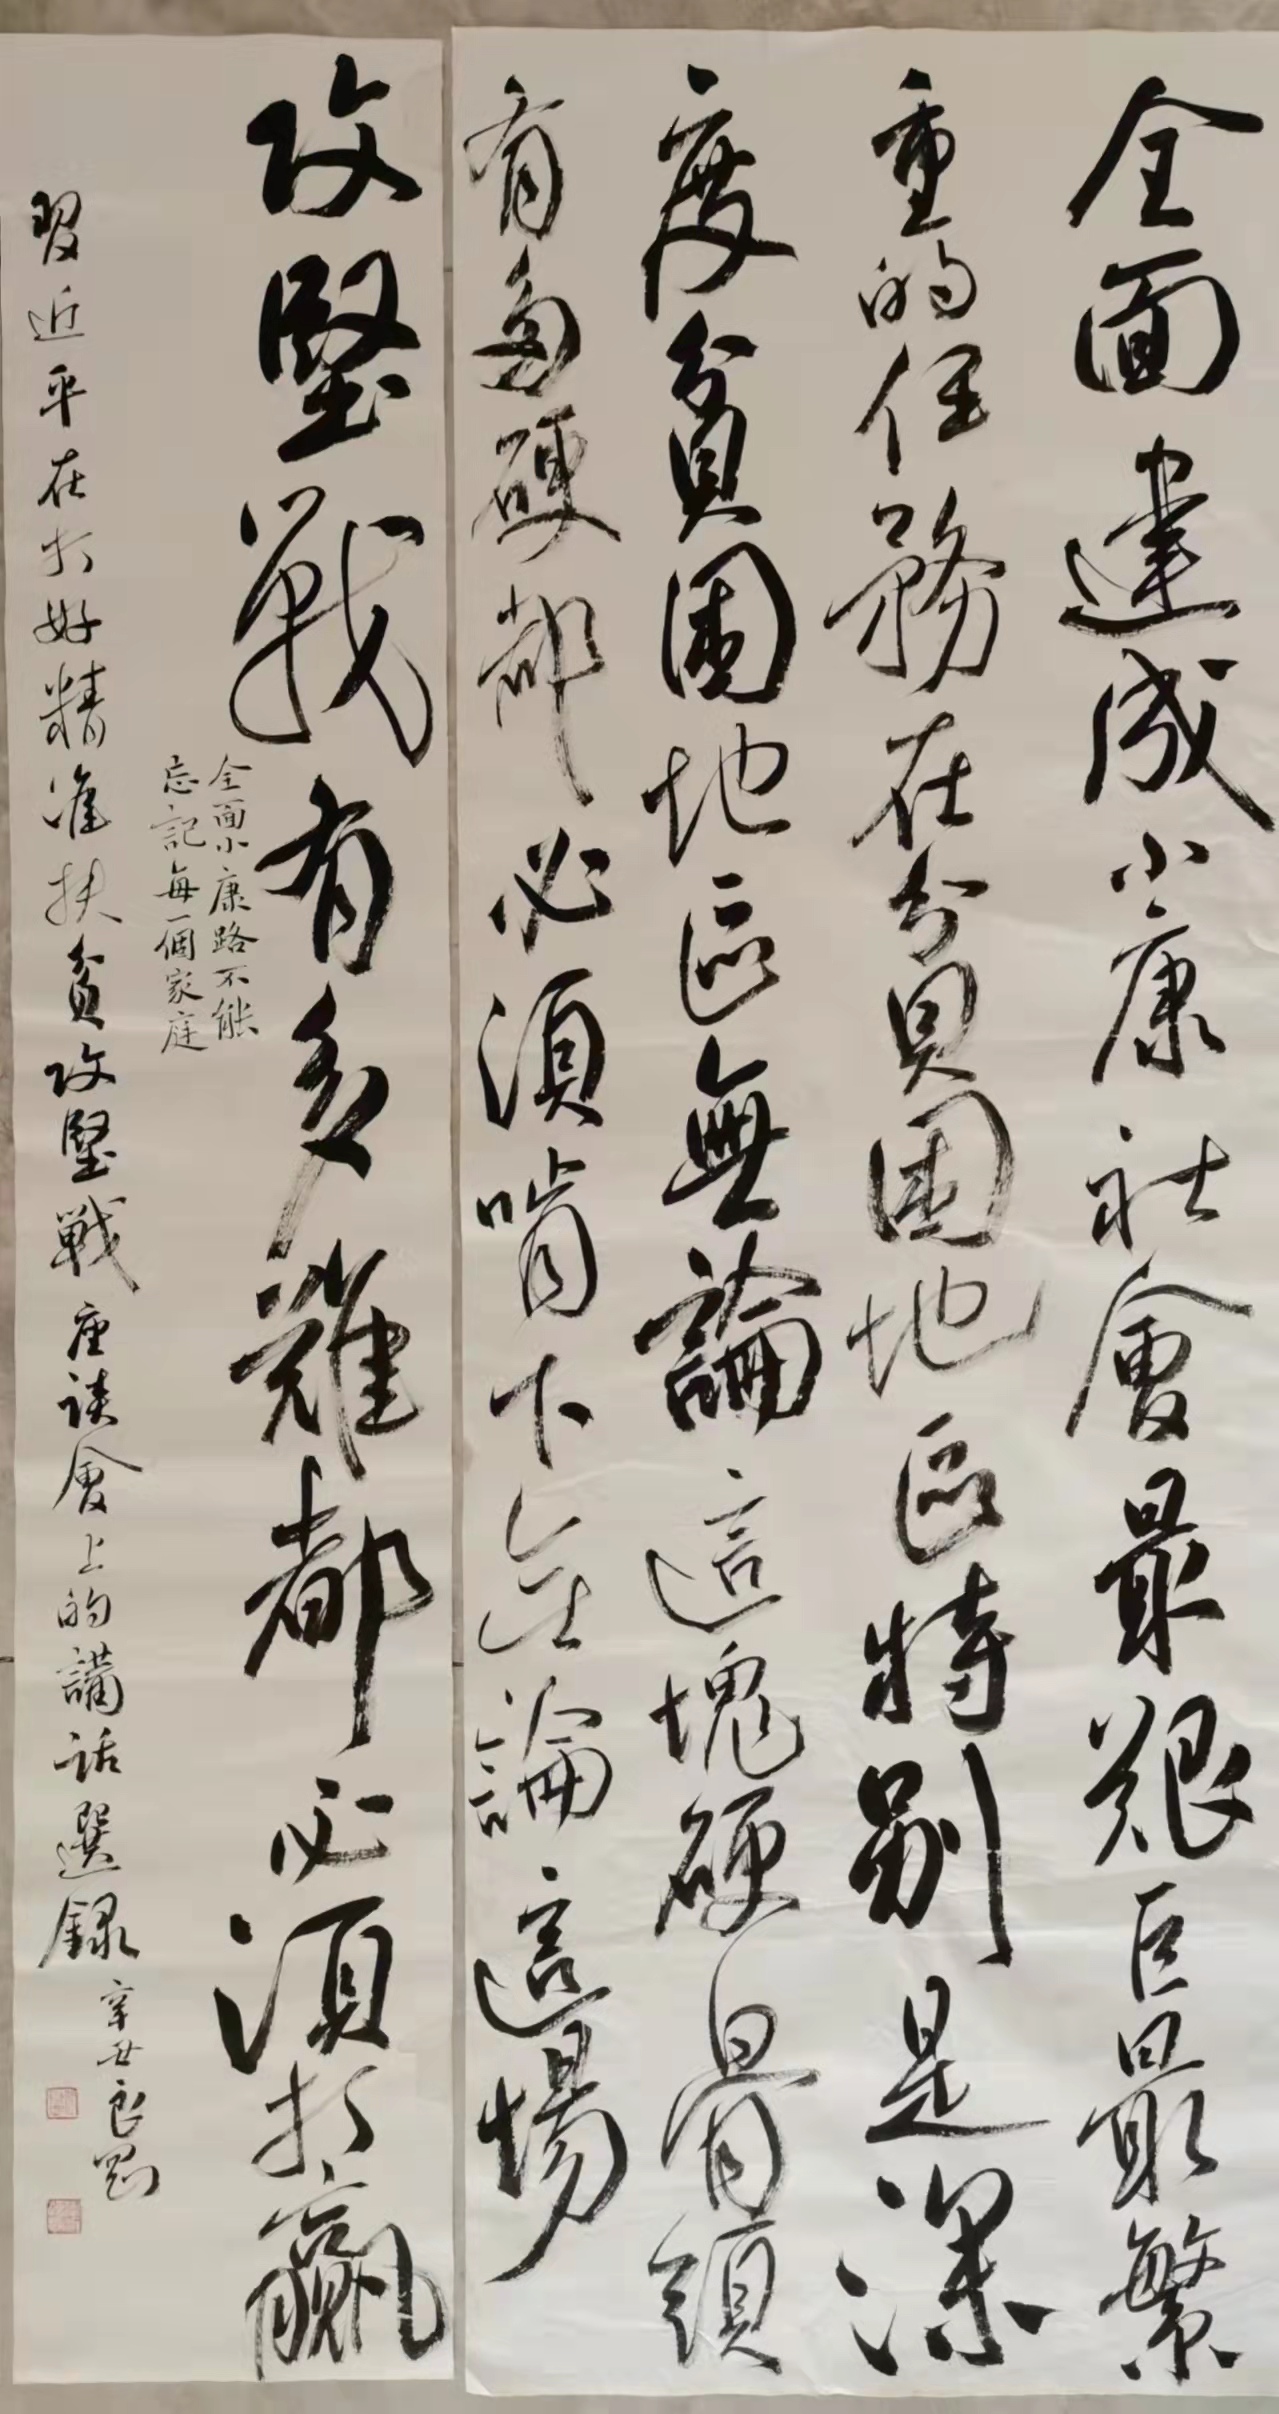 全面建成小康社會最艱巨最繁
重的任務在貧困地區特別是深
度貧困地區無論這塊硬骨頭
有多硬都必須啃下無論這場
攻堅戰有多難都必須打贏
全面小康路不能
忘記每一個家庭
習近平在打好精准扶貧攻堅戰座談會上的講話選錄
辛丑良剛